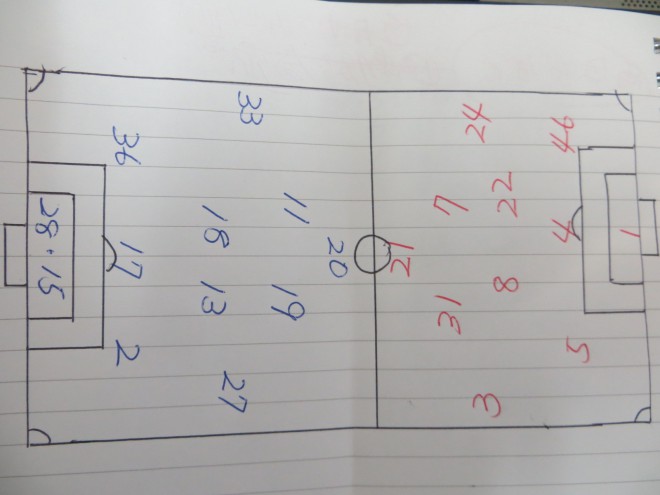 20
11 19
33 18 13 27
36 17 2
28・15
21
31 7
3 8 22 24
5 4 46
1